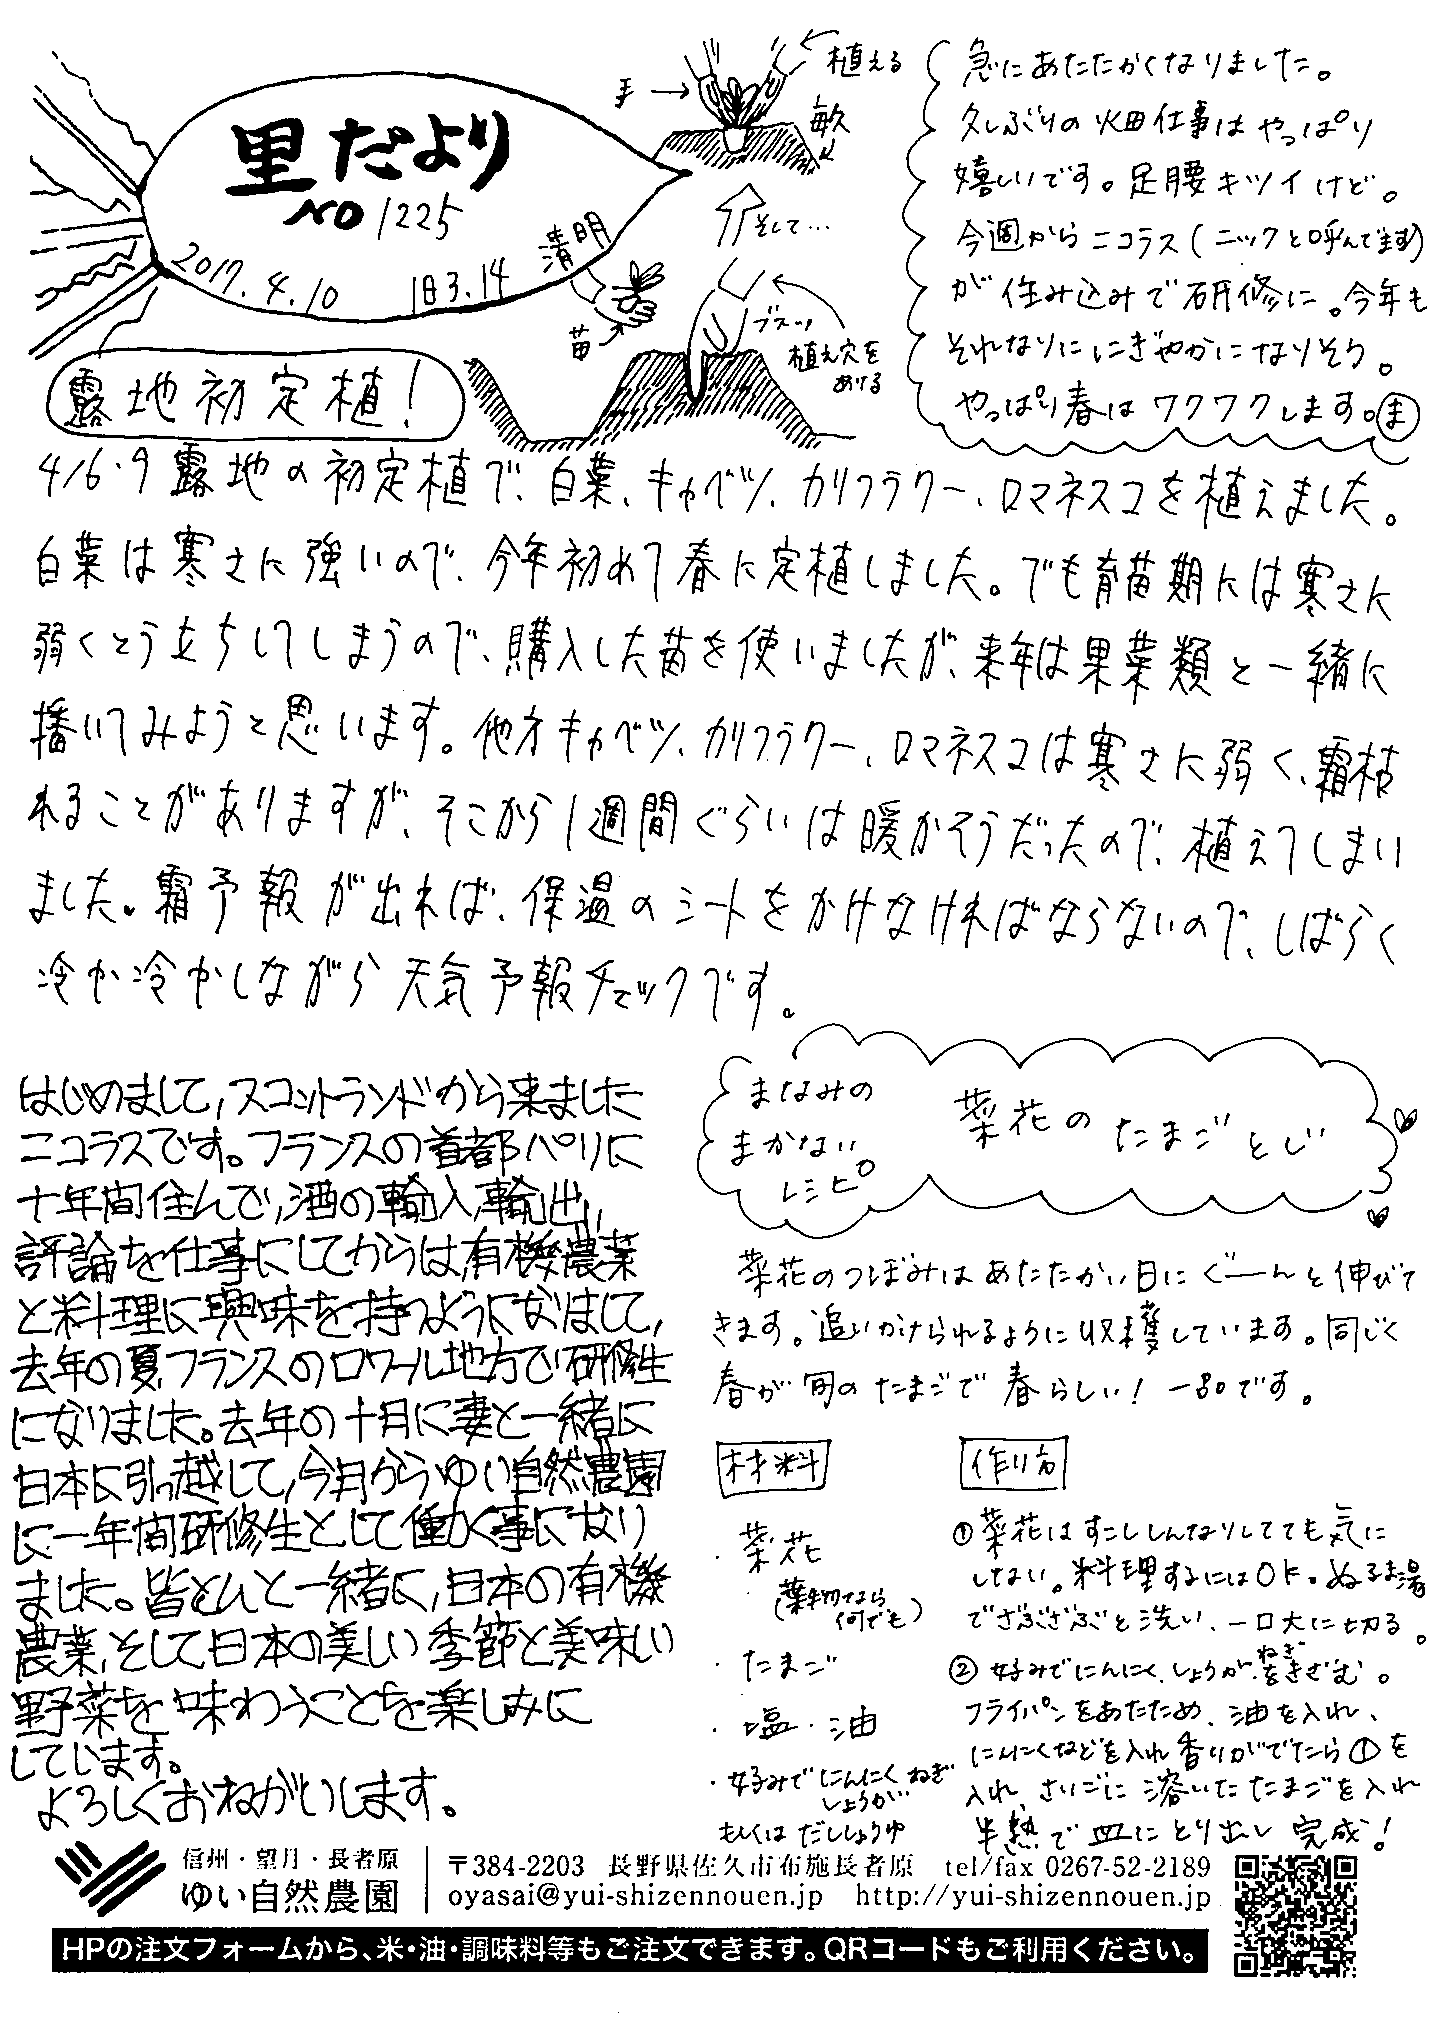 里だより
NO 1225
2017.4.10 旧3.14 清明
手→
植える
畝
そして…
苗
ブスッ
植え穴を
あける
急にあたたかくなりました。
久しぶりの畑仕事はやっぱり
嬉しいです。足腰キツイけど。
今週からニコラス(ニックと呼んでます)
が住み込みで研修に。今年も
それなりににぎやかになりそう。
やっぱり春はワクワクします。ま
露地初定植!
4/6・9 露地の初定植で、白菜、キャベツ、カリフラワー、ロマネスコを植えました。
白菜は寒さに強いので、今年初めて春に定植しました。でも育苗期には寒さに
弱くとう立ちしてしまうので、購入した苗を使いましたが、来年は果菜類と一緒に
播いてみようと思います。他方キャベツ、カリフラワー、ロマネスコは寒さに弱く、霜枯
れることがありますが、そこから1週間ぐらいは暖かそうだったので、植えてしまい
ました。霜予報が出れば、保温のシートをかけなければならないので、しばらく
冷や冷やしながら天気予報チェックです。
はじめまして,スコットランドから来ました
ニコラスです。フランスの首都パリに
十年間住んで,酒の輸入,輸出,
評論を仕事にしてからは,有機農業
と料理に興味を持つようになりまして,
去年の夏,フランスのロワール地方で研修生
になりました。去年の十月に妻と一緒に
日本に引っ越して,今月からゆい自然農園
に一年間研修生として働く事になり
ました。皆さんと一緒に,日本の有機
農業,そして日本の美しい季節と美味しい
野菜を味わうことを楽しみに
しています。
よろしくおねがいします。
まなみの
まかない
レシピ
菜花のたまごとじ
菜花のつぼみはあたたかい日にぐーんと伸びて
きます。追いかけられるように収穫しています。同じく
春が旬のたまごで春らしい!一品です。
材料
・菜花
(葉物なら
何でも)
・たまご
・塩・油
・好みでにんにくねぎ
しょうが
もしくはだししょうゆ
作り方
①菜花はすこししんなりしてても気に
しない。料理するにはOK。ぬるま湯
でざぶざぶと洗い、一口大に切る。
②好みでにんにく、しょうが、ねぎをきざむ。
フライパンをあたため、油を入れ、
にんにくなどを入れ香りがでたら①を
入れ、さいごに溶いたたまごを入れ
半熟で皿にとり出し完成!
信州・望月・長者原
ゆい自然農園
〒384-2203 長野県佐久市布施長者原 tel/fax 0267-52-2189
oyasai@yui-shizennouen.jp http://yui-shizennouen.jp
HPの注文フォームから、米・油・調味料等もご注文できます。QRコードもご利用ください。